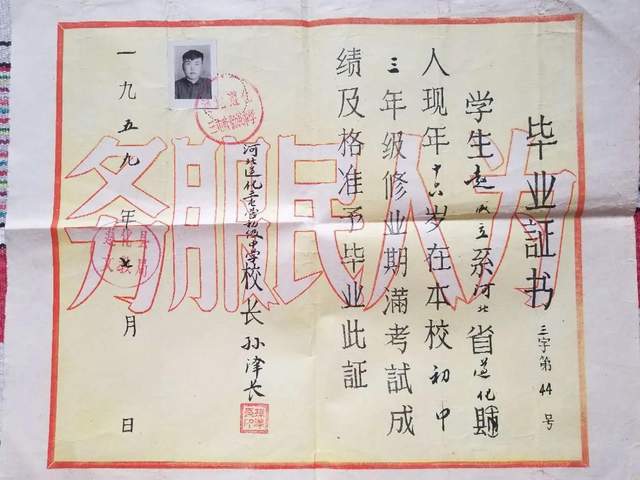 毕业证书
三字第44号
学生赵成立系河北省遵化县
人现年十六岁在本校初中
三年级修业期满考試成
绩及格准予毕业此証
河北遵化三屯营初级中学校长孙泽长
一九五九年七月 日
为人民服务
遵化县
文教局